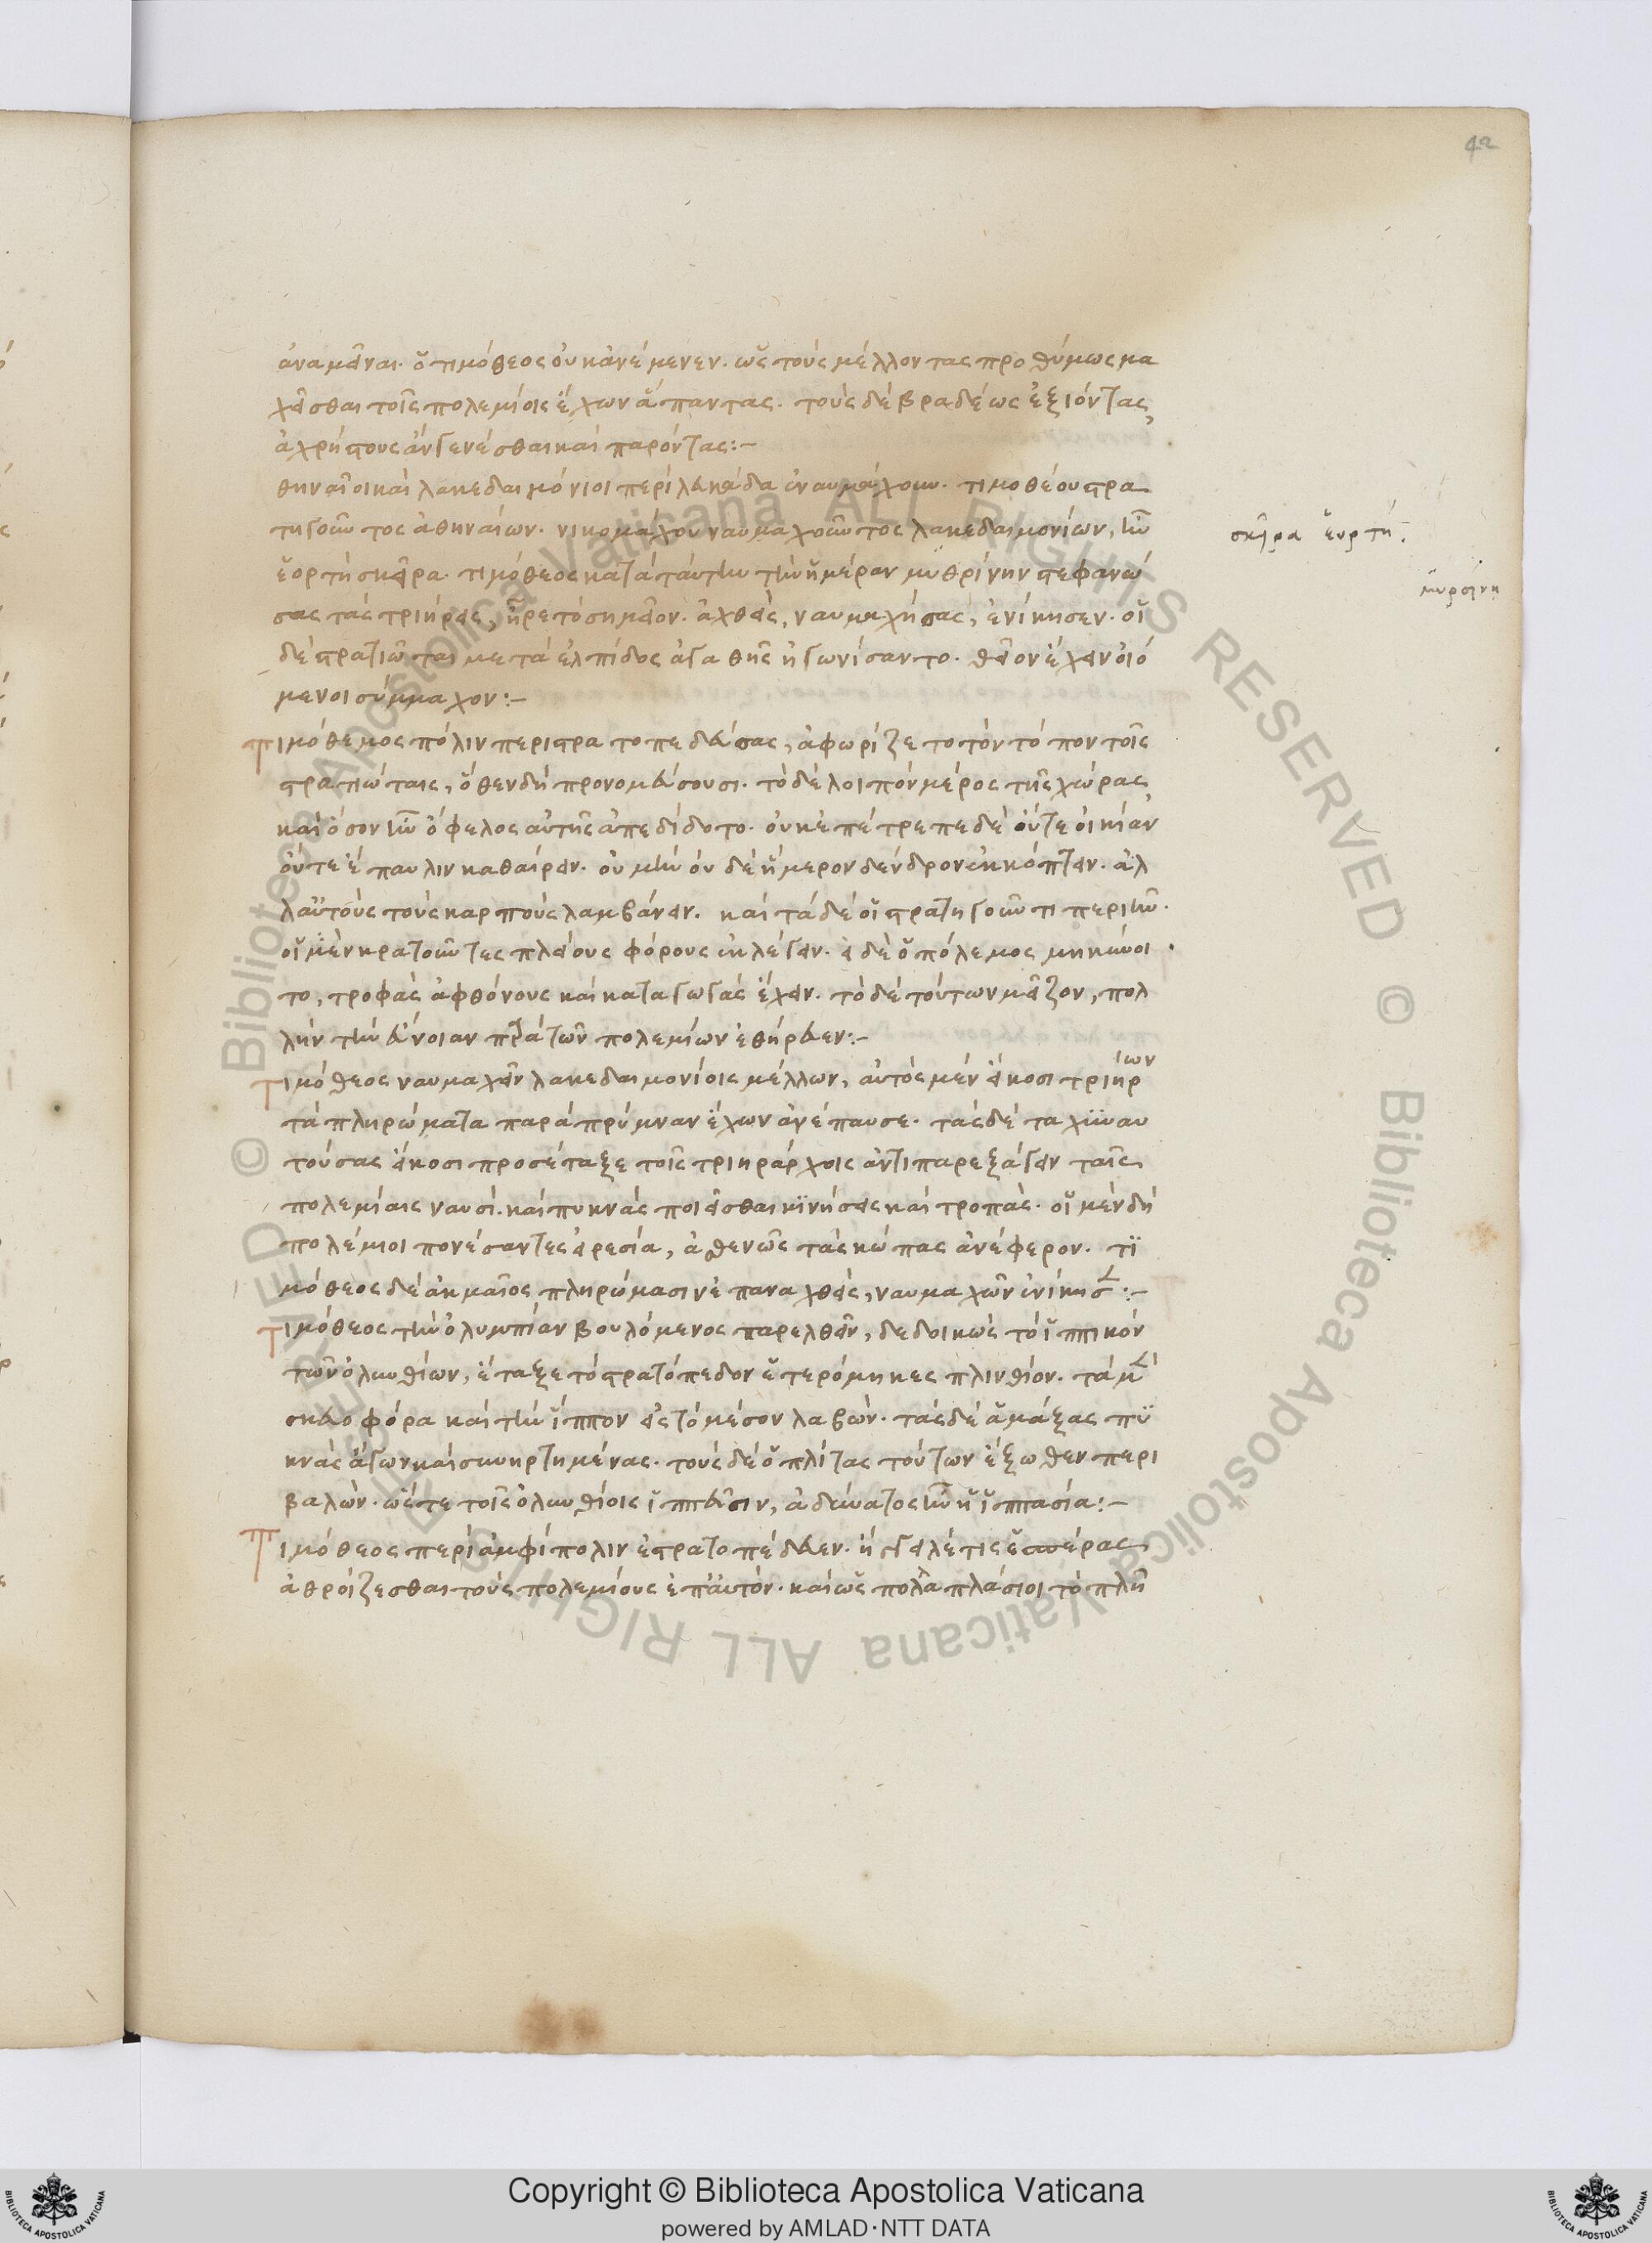 42
ἀναμεῖναι. ὁ τιμόθεος οὐκ ἀνέμενεν. ὡς τοὺς μέλλοντας προθύμως μα
χεῖσθαι τοῖς πολεμίοις ἔχων ἅπαντας. τοὺς δὲ βραδέως ἐξιόντας,
ἀχρήστους ἂν γενέσθαι καὶ παρόντας:–
θηναῖοι καὶ λακεδαιμόνιοι περὶ λευκάδα ἐναυμάχουν. τιμοθέου στρα
τηγοῦντος ἀθηναίων. νικομάχου ναυμαχοῦντος λακεδαιμονίων, ἦν
ἑορτὴ σκεῖρα. τιμόθεος κατὰ ταύτην τὴν ἡμέραν μυθρίνην στεφανώ
σας τὰς τριήρεις, ἦρε τὸ σημεῖον. ἀχθεὶς, ναυμαχήσας, ἐνίκησεν. οἱ
δὲ στρατιῶται μετὰ ἐλπίδος ἀγαθῆς ἠγωνίσαντο. θεῖον ἔχειν οἰό
μενοι σύμμαχον:–
Τιμόθεμος πόλιν περιστρατοπεδεύσας, ἀφωρίζετο τὸν τόπον τοῖς
στρατιώταις, ὅθεν δὴ προνομεύσουσι. τὸ δὲ λοιπὸν μέρος τῆς χώρας,
καὶ ὅσον ἦν ὄφελος αὐτῆς ἀπεδίδοτο. οὐκ ἐπέτρεπε δὲ οὔτε οἰκίαν
οὔτε ἔπαυλιν καθαίρειν. οὐ μὴν οὐδὲ ἥμερον δένδρον ἐκκόπτειν. ἀλ
λ' αὐτοὺς τοὺς καρποὺς λαμβάνειν. καὶ τάδε οἱ στρατηγοῦντι περιῆν.
οἱ μὲν κρατοῦντες πλείους φόρους ἐκλέγειν. εἰ δὲ ὁ πόλεμος μηκύνοι
το, τροφὰς ἀφθόνους καὶ καταγωγὰς ἔχειν. τὸ δὲ τούτων μεῖζον, πολ
λὴν τὴν εὔνοιαν παρὰ τῶν πολεμίων ἐθήρευεν:–
Τιμόθεος ναυμαχεῖν λακεδαιμονίοις μέλλων, αὐτὸς μὲν εἴκοσι τριήρων
τὰ πληρώματα παρὰ πρύμναν ἔχων ἀνέπαυσε. τὰς δὲ ταχϋναυ
τούσας εἴκοσι προσέταξε τοῖς τριηράρχοις ἀντιπαρεξάγειν ταῖς
πολεμίαις ναυσί. καὶ πυκνὰς ποιεῖσθαι κϊνήσεις καὶ τροπὰς. οἱ μὲν δὴ
πολέμιοι πονέσαντες εἰρεσία, ἀσθενῶς τὰς κώπας ἀνέφερον. τϊ
μόθεος δὲ ἀκμαῖος πληρώμασιν ἐπαναχθεὶς, ναυμαχῶν ἐνίκησε:–
Τιμόθεος τὴν ὀλυμπίαν βουλόμενος παρελθεῖν, δεδοικὼς τὸ ἱππικὸν
τῶν ὀλυνθίων, ἔταξε τὸ στρατόπεδον ἑτερόμηκες πλινθίον. τὰ μὲν
σκευοφόρα καὶ τὴν ἵππον εἰς τὸ μέσον λαβὼν. τὰς δὲ ἁμάξας πϋ
κνὰς ἄγων καὶ συνηρτημένας. τοὺς δὲ ὁπλίτας τούτων ἔξωθεν περι
βαλὼν. ὥστε τοῖς ὀλυνθίοις ἱππεῦσιν, ἀδύνατος ἦν ἡ ἱππασία:–
Τιμόθεος περὶ ἀμφίπολιν ἐστρατοπέδευεν. ἤγγειλέ τις ἑσπέρας,
ἀθροίζεσθαι τοὺς πολεμίους ἐπ' αὐτὸν. καὶ ὡς πολλαπλάσιοι τὸ πλῆ
σκῖρα ἑορτή.
μυρσίνη
Copyright © Biblioteca Apostolica Vaticana
powered by AMLAD·NTT DATA
© Biblioteca Apostolica Vaticana ALL RIGHTS RESERVED © Biblioteca Apostolica Vaticana ALL RIGHTS RESERVED
BIBLIOTECA APOSTOLICA VATICANA
BIBLIOTECA APOSTOLICA VATICANA